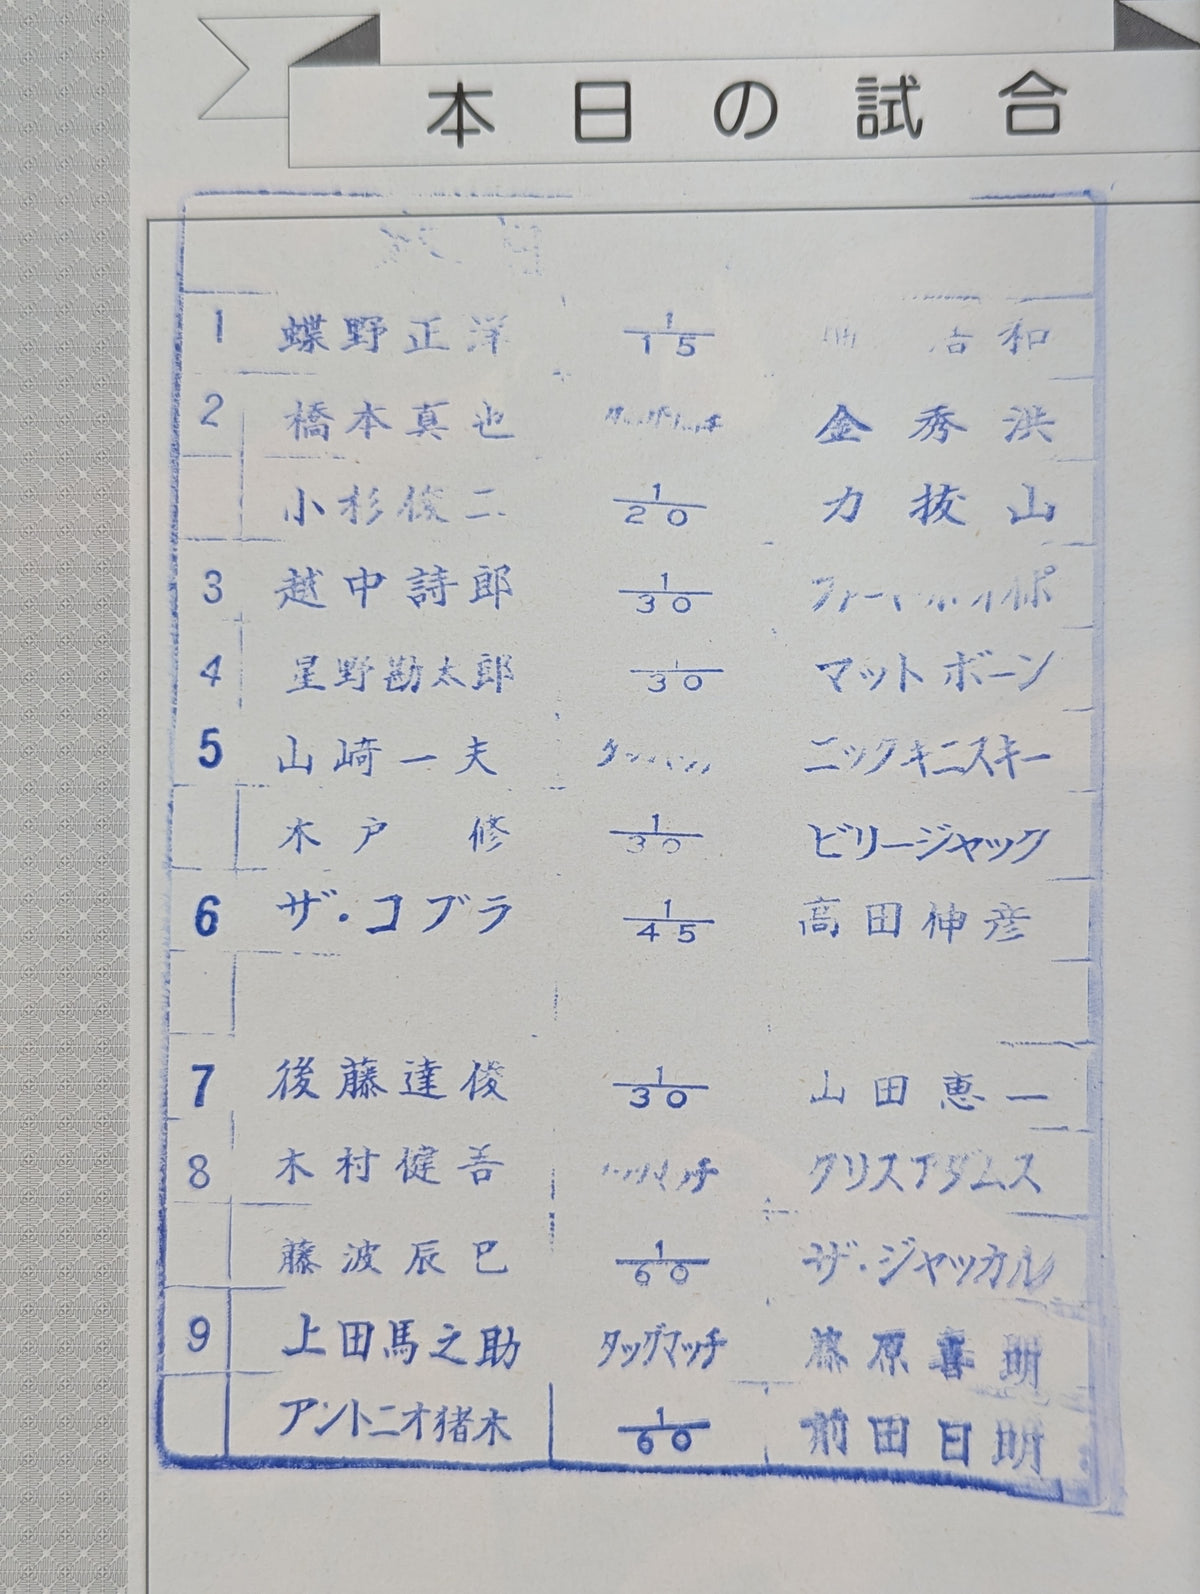 本日の試合
1 蝶野正洋 1/15 和
2 橋本真也 金秀洪
小杉俊二 1/20 力抜山
3 越中詩郎 1/30
4 星野勘太郎 1/30 マットボーン
5 山崎一夫 ニックキニスキー
木戸修 1/30 ビリージャック
6 ザ・コブラ 1/45 高田伸彦
7 後藤達俊 1/30 山田恵一
8 木村健吾 タッグマッチ クリスアダムス
藤波辰巳 1/60 ザ・ジャッカル
9 上田馬之助 タッグマッチ 藤原喜明
アントニオ猪木 1/60 前田日明